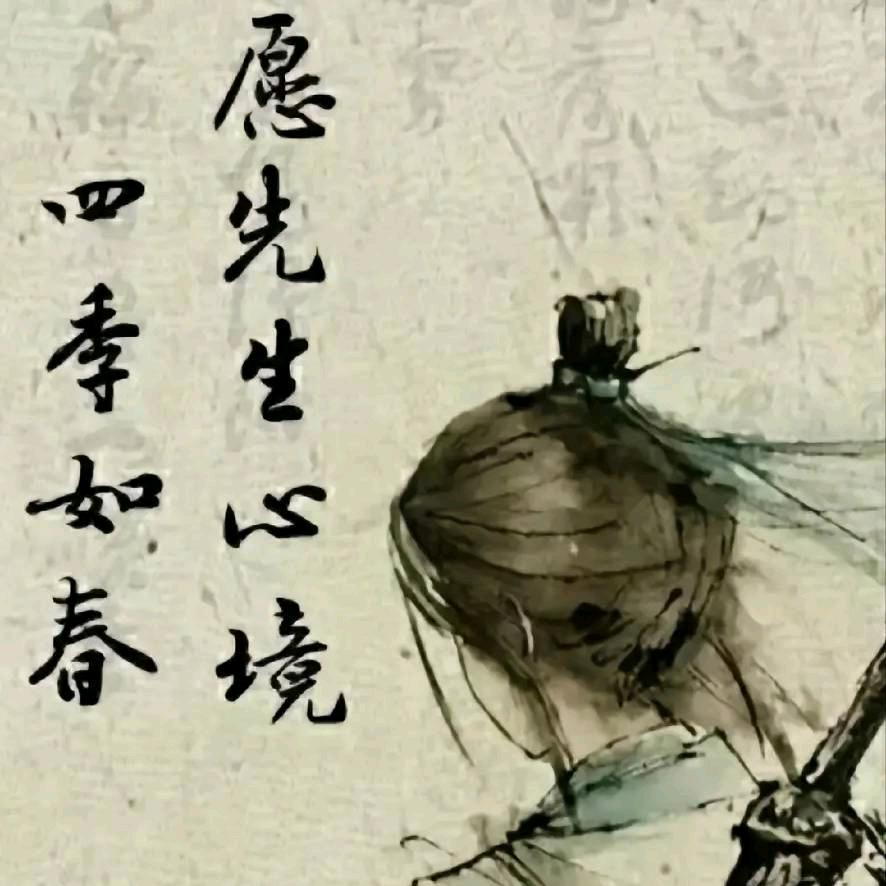 愿先生心境
四季如春